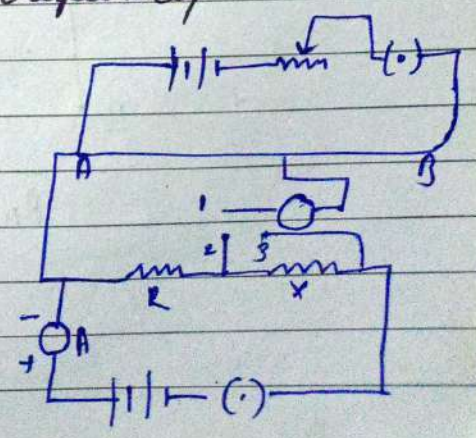 A B
1
2 3
R X
-
A
+